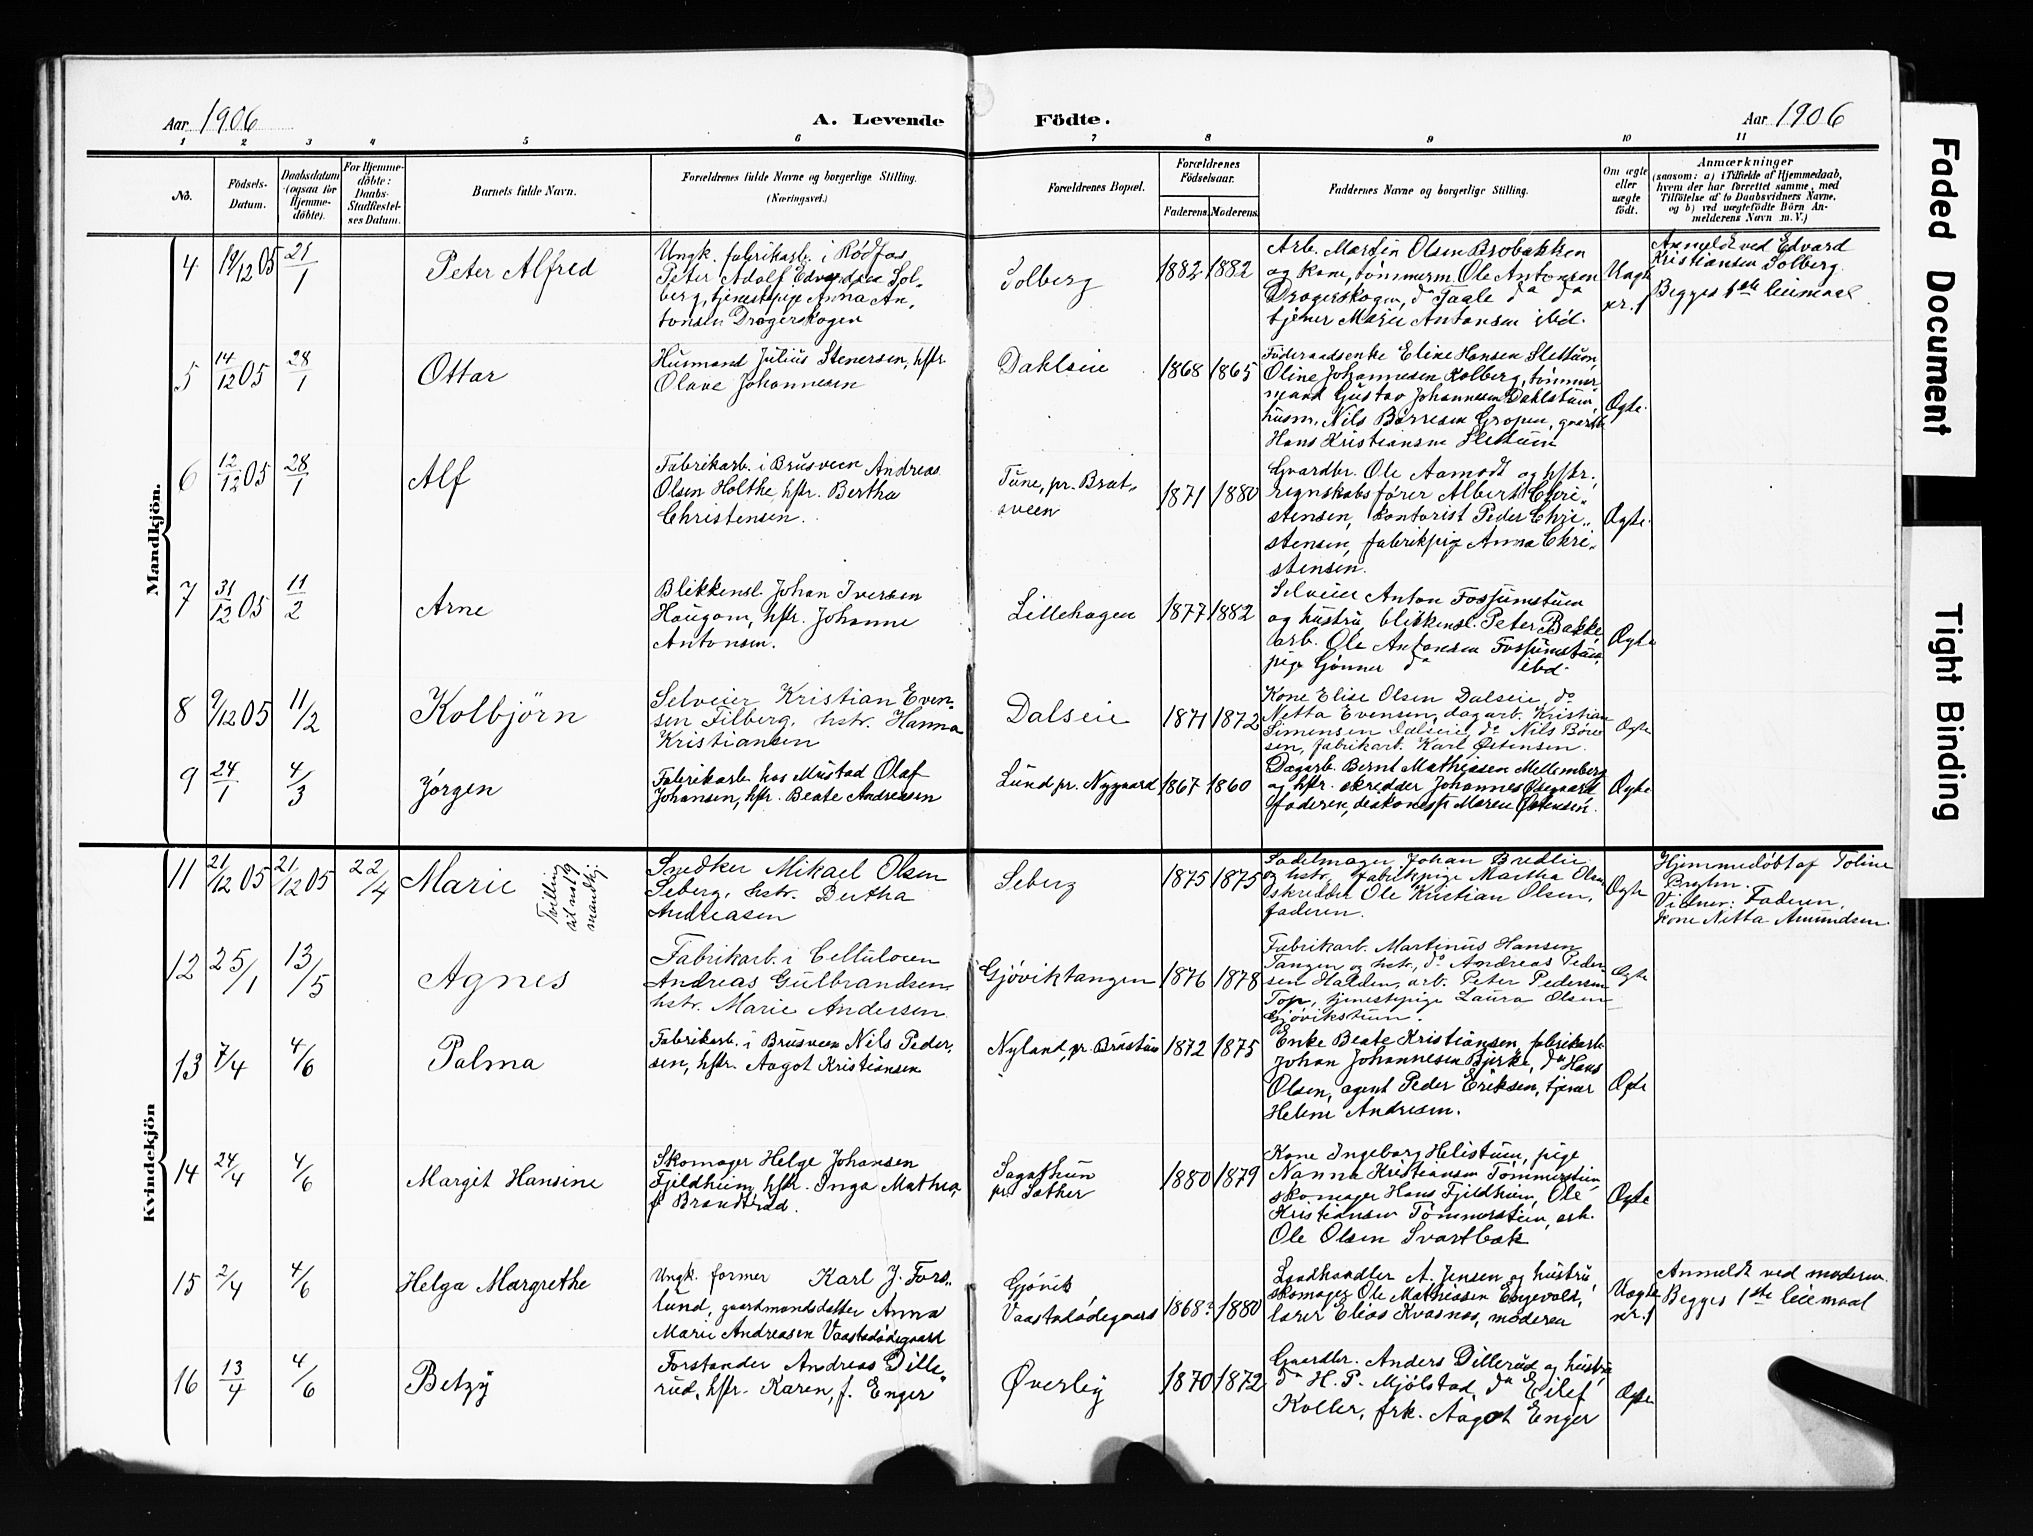 Aar 1906
A. Levende
Födte.
Aar 1906
1 2 3 4 5 6 7 8 9 10 11
No.
Födsels-
Datum.
Daabsdatum
(ogsaa for
Hjemme-
döbte).
For Hjemme-
döbte:
Daabs-
Stadfæstel-
ses Datum.
Barnets fulde Navn.
Forældrenes fulde Navne og borgerlige Stilling.
(Næringsvei.)
Forældrenes Bopæl.
Forældrenes
Födselsaar.
Faderens. Moderens.
Faddernes Navne og borgerlige Stilling.
Om ægte
eller
uægte
født.
Anmærkninger
(saasom: a) i Tilfælde af Hjemmedaab,
hvem der har forrettet samme, med
Tilföielse af to Daabsvidners Navne,
og b) ved uægtefödte Börn An-
melderens Navn m. V.)
Mandkjön.
4
19/12 05
21/1
Peter Alfred
Ungk. fabrikarb. i Rødfos
Peter Adolf Edvardsen Sol-
berg, tjenestepige Anna An-
tonsen Dragerskogen
Solberg
1882 1882
Arb. Martin Olsen Brobakken
og kone, tømmerm. Ole Antonsen
Dragerskogen, do Taale do do
tjener Marie Antonsen ibd.
Uægte
nr. 1
Anmeldt ved Edvard
Kristiansen Solberg.
Begges 1ste leiemaal.
5
14/12 05
28/1
Ottar
Husmand Julius Stenersen, hstr.
Olave Johannesen
Dahlseie
1868 1865
Føderaadsenke Eline Hansen Slettum,
Oline Johannesen Kolberg, tømmer-
mand Gustav Johannesen Dahlstuen,
husm. Nils Børresen Gropen, gaardb.
Hans Kristiansen Slettum
Ægte.
6
12/12 05
28/1
Alf
Fabrikarb. i Brusveen Andreas
Olsen Holthe, hstr. Bertha
Christensen.
Tune, pr. Brat-
sveen
1871 1880
Gaardbr. Ole Aamodt og hstr.,
regnskabsfører Albert Chri-
stensen, kontorist Peder Chri-
stensen, fabrikpig. Anna Chri-
stensen.
Ægte.
7
31/12 05
11/2
Arne
Blikkensl. Johan Iversen
Haugom, hstr. Johanne
Antonsen.
Lillehagen
1877 1882
Selveier Anton Fossumstuen
og hustru, blikkensl. Peter Bakke,
arb. Ole Antonsen Fossumstuen,
pige Gønner do ibd.
Ægte
8
9/12 05
11/2
Kolbjörn
Selveier Kristian Even-
sen Filberg, hstr. Hanna
Kristiansen
Dalseie
1871 1872
Kone Elise Olsen Dalseie, do
Netta Evensen, dagarb. Kristian
Simensen Dalseie, do Nils Børe-
sen, fabrikarb. Karl Østensen.
Ægte
9
24/1
4/3
Jørgen
Fabrikarb. hos Mustad Olaf
Johansen, hstr. Beate Andreasen
Lund pr. Nygaard
1867 1860
Dagarb. Bernt Mathiasen Mellemberg
og hstr. skrædder Johannes Øsegaard
faderen, diakonesse Maren Østensen.
Ægte
Kvindekjön
11
21/12 05
21/12 05
22/4
Marie
Tvilling
til no 19
mandkj.
Snedker Mikael Olsen
Seberg, hstr. Bertha
Andreasen
Seberg
1875 1875
Sadelmager Johan Bredlie
og hstr., fabrikpige Martha Olsen
skrædder Ole Kristian Olsen,
faderen.
Ægte
Hjemmedøbt af Toline
Vidner: Faderen,
kone Netta Amundsen
12
25/1
13/5
Agnes
Fabrikarb. i Cellulosen
Andreas Gulbrandsen
hstr. Marie Andersen.
Gjøviktangen
1876 1878
Fabrikarb. Martinus Hansen
Tangen og hstr., do Andreas Peder-
sen Halden, arb. Peter Pedersen
Top, tjenestepige Laura Olsen
Gjøvikstuen.
Ægte
13
7/4
4/6
Palma
Fabrikarb. i Brusveen Nils Peder-
sen, hstr. Aagot Kristiansen
Nyland, pr. Brustuen
1872 1875
Enke Beate Kristiansen, fabrikarb.
Johan Johannesen Bjerke, do Hans
Olsen, agent Peder Eriksen, tjener
Helene Andresen.
Ægte
14
24/4
4/6
Margit Hansine
Skomager Helge Johansen
Fjeldheim, hstr. Inga Mathea,
f. Brandtrud.
Sagathun
pr. Sather
1880 1879
Kone Ingeborg Helistuen, pige
Nanna Kristiansen Tømmerstuen,
skomager Hans Fjeldheim, Ole
Kristiansen Tømmerstuen, arb.
Ole Olsen Svartbæk
Ægte
15
2/4
4/6
Helga Margrethe
Ungk. former Karl J. Fors-
lund, gaardmandsdatter Anna
Marie Andreasen Vaastadødegaard
Gjøvik
Vaastadødegaard
1868? 1880
Landhandler A. Jensen og hustru,
skomager Ole Mathiasen Engevold,
lærer Elias Kvasnes, moderen
Uægte
nr. 1
Anmeldt ved moderen.
Begges 1ste leiemaal
16
13/4
4/6
Betzy
Forstander Andreas Dille-
rud, hstr. Karen, f. Enger
Øverby
1870 1872
Gaardbr. Anders Dillerud og hustru,
do H. P. Mjølstad, do Eilef
Koller, frk. Aagot Enger
Ægte
Faded Document
Tight Binding